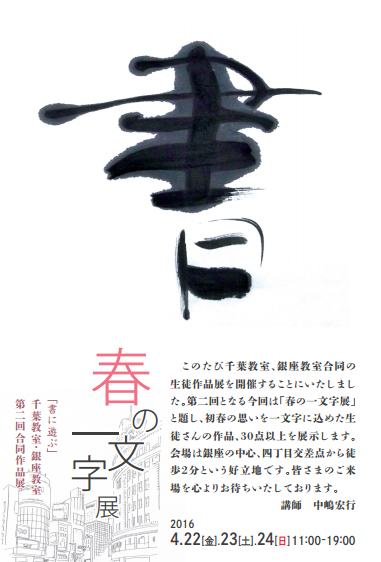 書
春の一文字展
「書に遊ぶ」
千葉教室・銀座教室
第二回 合同作品展
このたび千葉教室、銀座教室合同の
生徒作品展を開催することにいたしまし
た。第二回となる今回は「春の一文字展」
と題し、初春の思いを一文字に込めた生
徒さんの作品、30点以上を展示します。
会場は銀座の中心、四丁目交差点から徒
歩2分という好立地です。皆さまのご来
場を心よりお待ちいたしております。
講師　中嶋宏行
2016
4.22[金].23[土].24[日]11:00-19:00